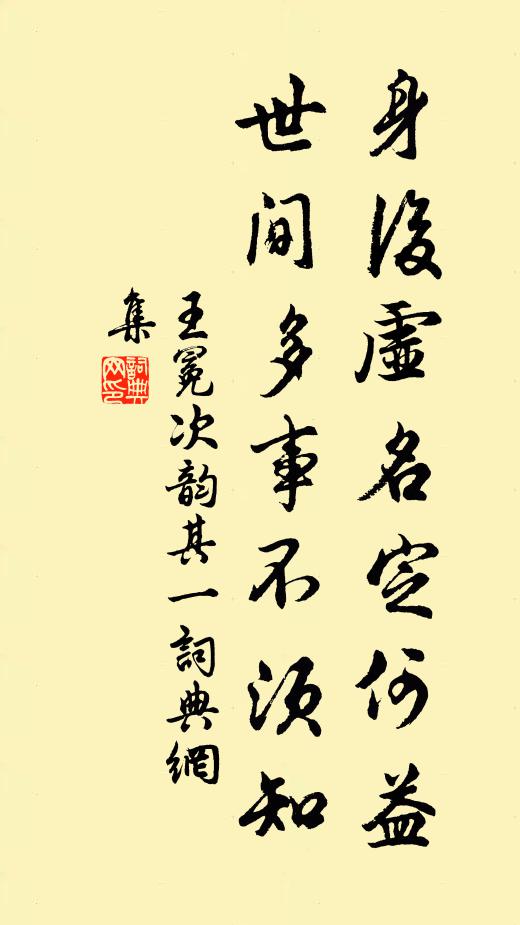 身後虛名定何益
世间多事不須知
王冕次韵其一詞典網
集
詞典网印